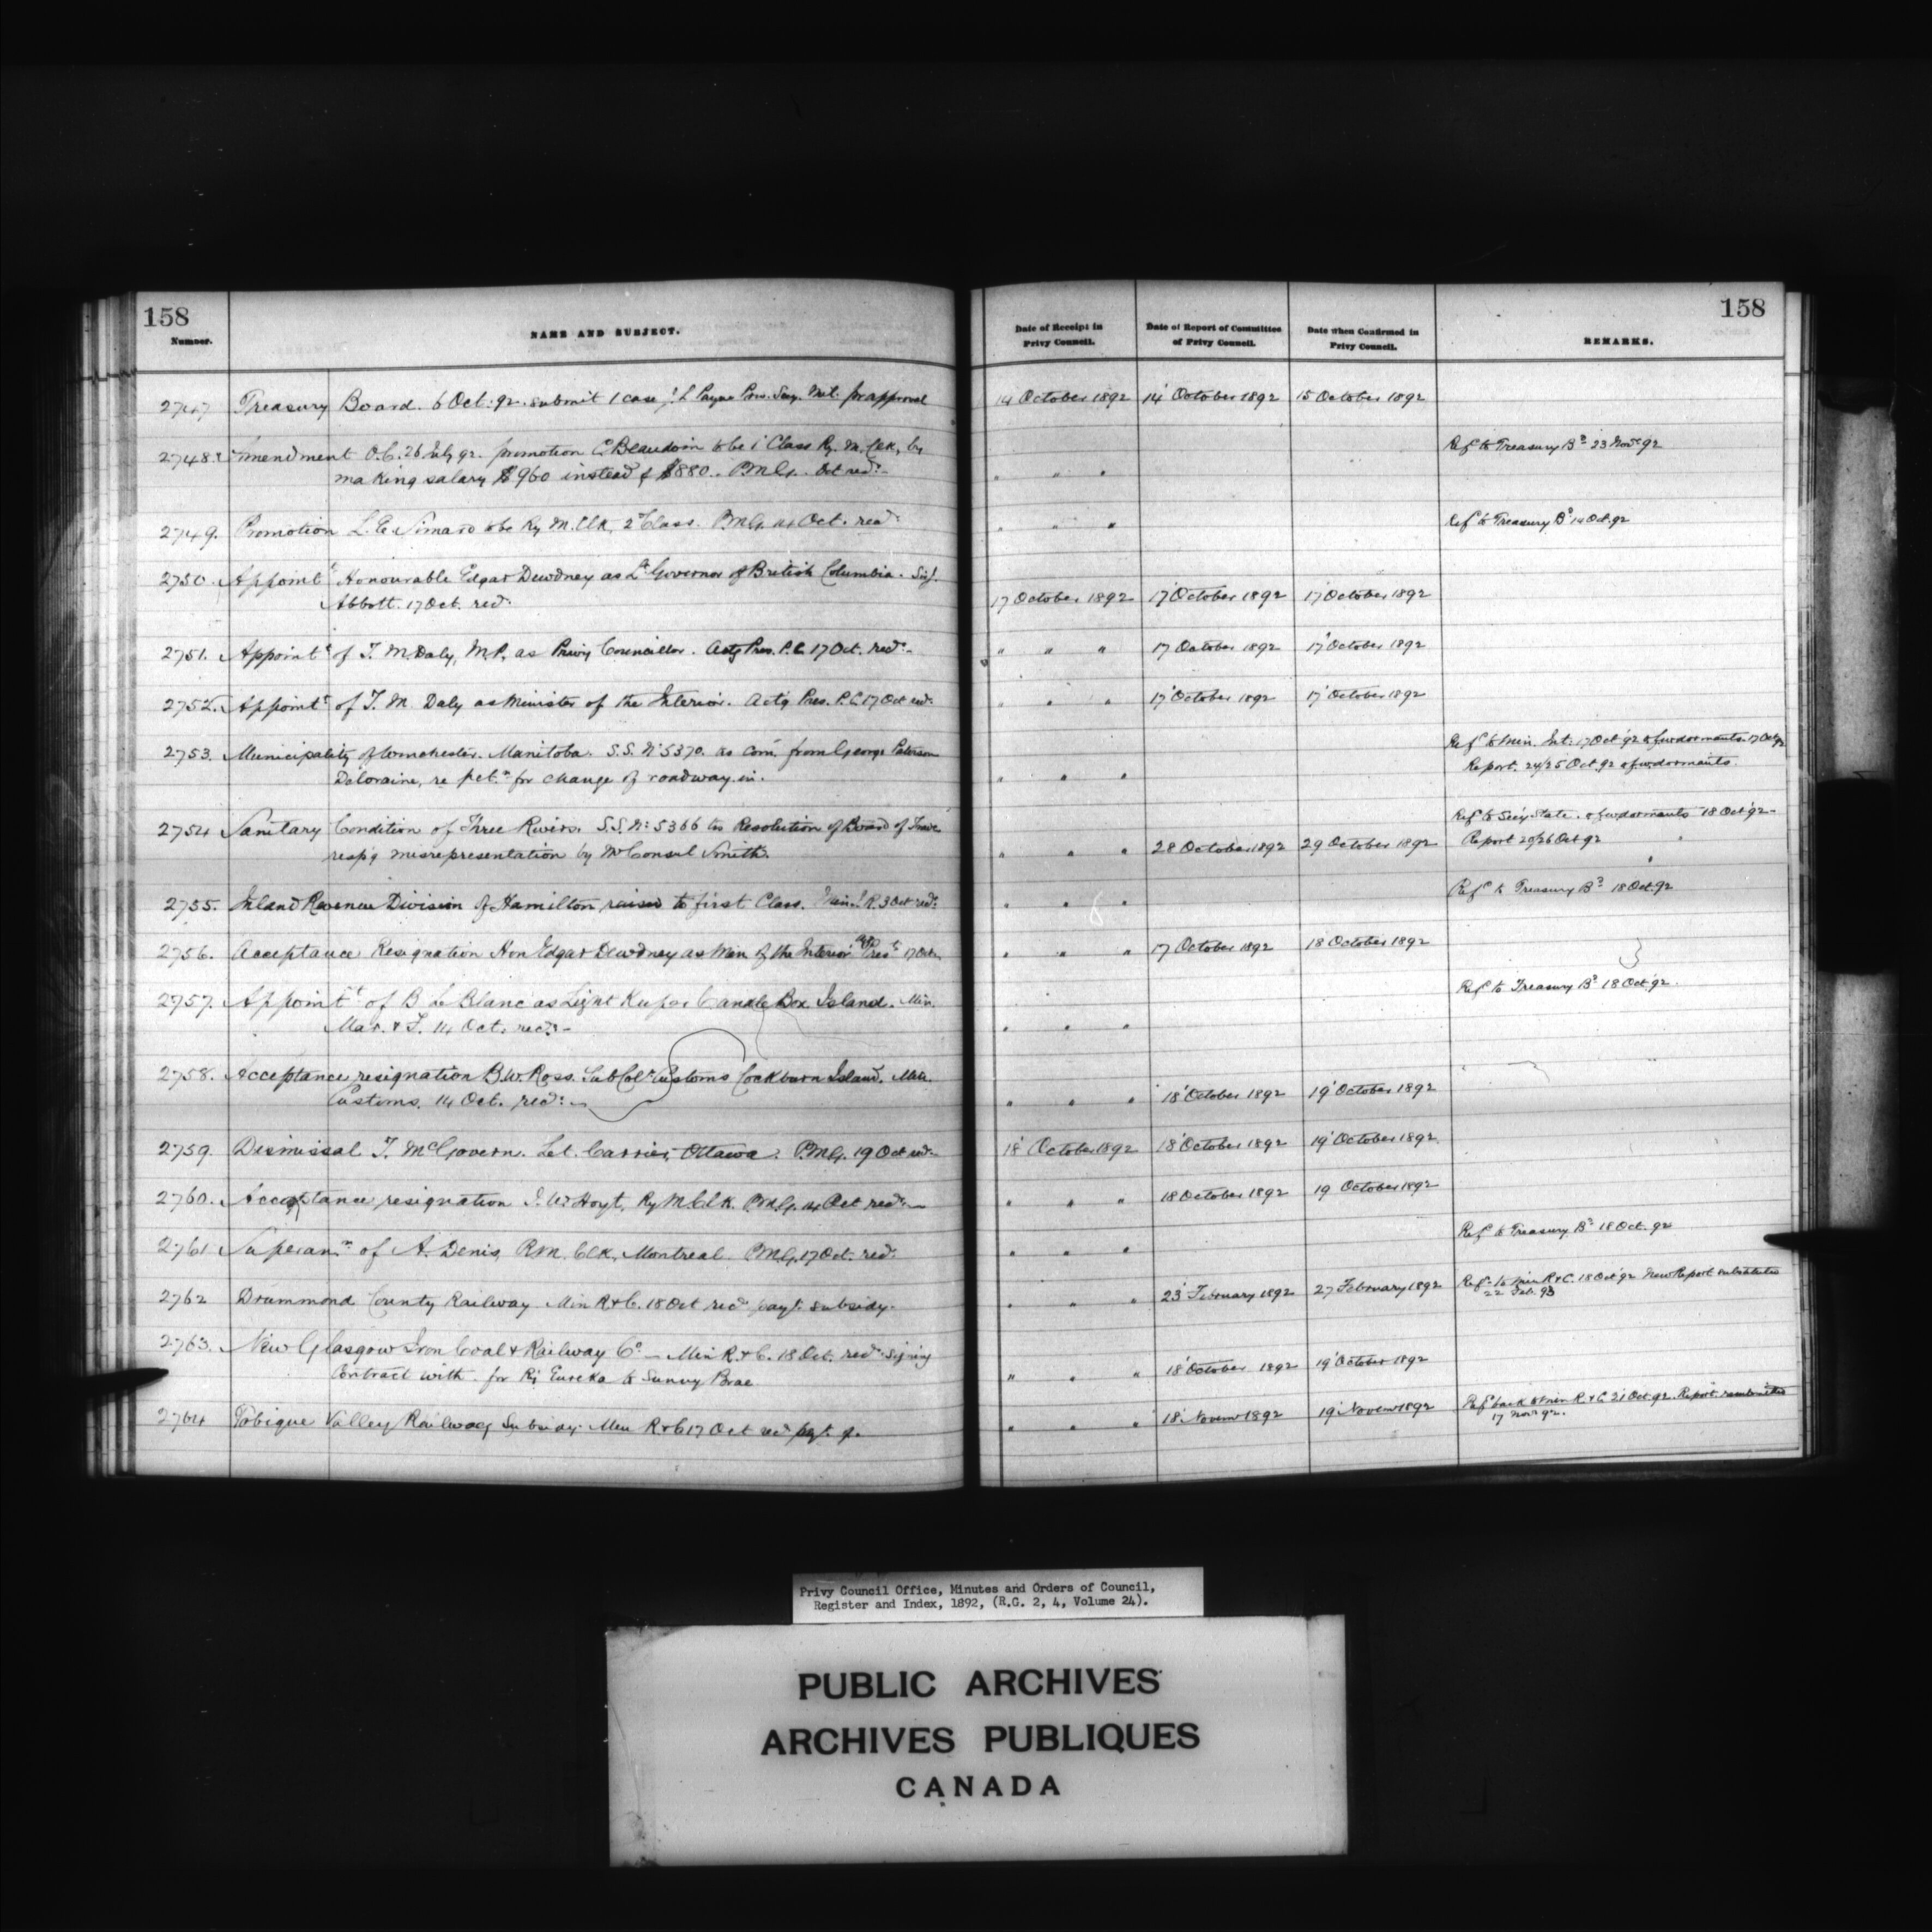 158
Number.
NAME AND SUBJECT.
2747 Treasury Board. 6 Oct. 92. submit 1 case J. L Payne Priv. Secy. for approval
2748. Amendment O.C. 26 July 92. promotion C. Beaudoin to be 1 Class Ry. M. Clk, by
making salary $960 instead of $880. PMG. Oct recd.
2749. Promotion L. E. Simard to be Ry M. Clk, 2 Class. PMG. Oct. recd
2750. Appointt Honourable Edgar Dewdney as Lt Governor of British Columbia. Sir J.
Abbott. 17 Oct. recd.
2751. Appointt of T. M. Daly, M.P. as Privy Councillor. Actg Pres. P.C. 17 Oct. recd.
2752. Appointt of T. M. Daly as Minister of the Interior. Actg Pres. P.C. 17 Oct recd.
2753. Municipality of Manitoba. S.S. No 5370. as Com. from George Paterson
Deloraine, re petn for change of roadway in.
2754 Sanitary Condition of Three Rivers. S.S. No 5366 Resolution of Board of Trade
resp'g misrepresentation by Mr Consul Smith.
2755. Inland Revenue Division of Hamilton raised to first Class. Min I. R. 3 Oct recd.
2756. Acceptance Resignation Hon Edgar Dewdney as Min of the Interior 17 Oct
2757. Appointt of B Le Blanc as Light Keeper Candle Box Island. Min.
Mar. & F. 14 Oct. recd.
2758. Acceptance resignation B. W. Ross. Sub Colr Customs Cockburn Island. Min.
Customs. 14 Oct. recd.
2759. Dismissal T. McGovern. Let. Carrier, Ottawa. PMG. 19 Oct recd.
2760. Acceptance resignation Hoyt, Ry M. Clk. PMG. 14 Oct recd.
2761 Superann of A. Denis, R.M. Clk, Montreal. PMG. 17 Oct. recd.
2762 Drummond County Railway. Min R & C. 18 Oct recd payt. subsidy.
2763. New Glasgow Iron Coal & Railway Co — Min R. & C. 18 Oct. recd. signing
Contract with for Ry Eureka to Sunny Brae
2764 Tobique Valley Railway Subsidy Min R & C 17 Oct recd payt. of.
158
Date of Receipt in Privy Council.
Date of Report of Committee of Privy Council.
Date when Confirmed in Privy Council.
REMARKS.
14 October 1892 14 October 1892 15 October 1892
Refd to Treasury Bd 23 Novr 92
" " "
" " " Refd to Treasury Bd 14 Oct. 92
17 October 1892 17 October 1892 17 October 1892
" " " 17 October 1892 17 October 1892
" " " 17 October 1892 17 October 1892
Refd to Min. Int. 17 Oct 92
" " " Report. 24/25 Oct. 92
Refd to Secy State. 18 Oct 92
" " " 28 October 1892 29 October 1892 Report 20/26 Oct 92
" " " Refd to Treasury Bd 18 Oct. 92
" " " 17 October 1892 18 October 1892
Refd to Treasury Bd 18 Oct 92.
" " "
" " " 18 October 1892 19 October 1892
18 October 1892 18 October 1892 19 October 1892
" " " 18 October 1892 19 October 1892
" " " Refd to Treasury Bd 18 Oct. 92
" " " 23 February 1892 27 February 1892 Refd to Min R & C. 18 Oct 92 New Report substituted
22 Feb. 93
" " " 18 October 1892 19 October 1892
" " " 18 Novemr 1892 19 Novemr 1892 Refd back to Min R. & C 21 Oct. 92. Report resubmitted
17 Novr 92.
Privy Council Office, Minutes and Orders of Council,
Register and Index, 1892, (R.G. 2, 4, Volume 24).
PUBLIC ARCHIVES
ARCHIVES PUBLIQUES
CANADA